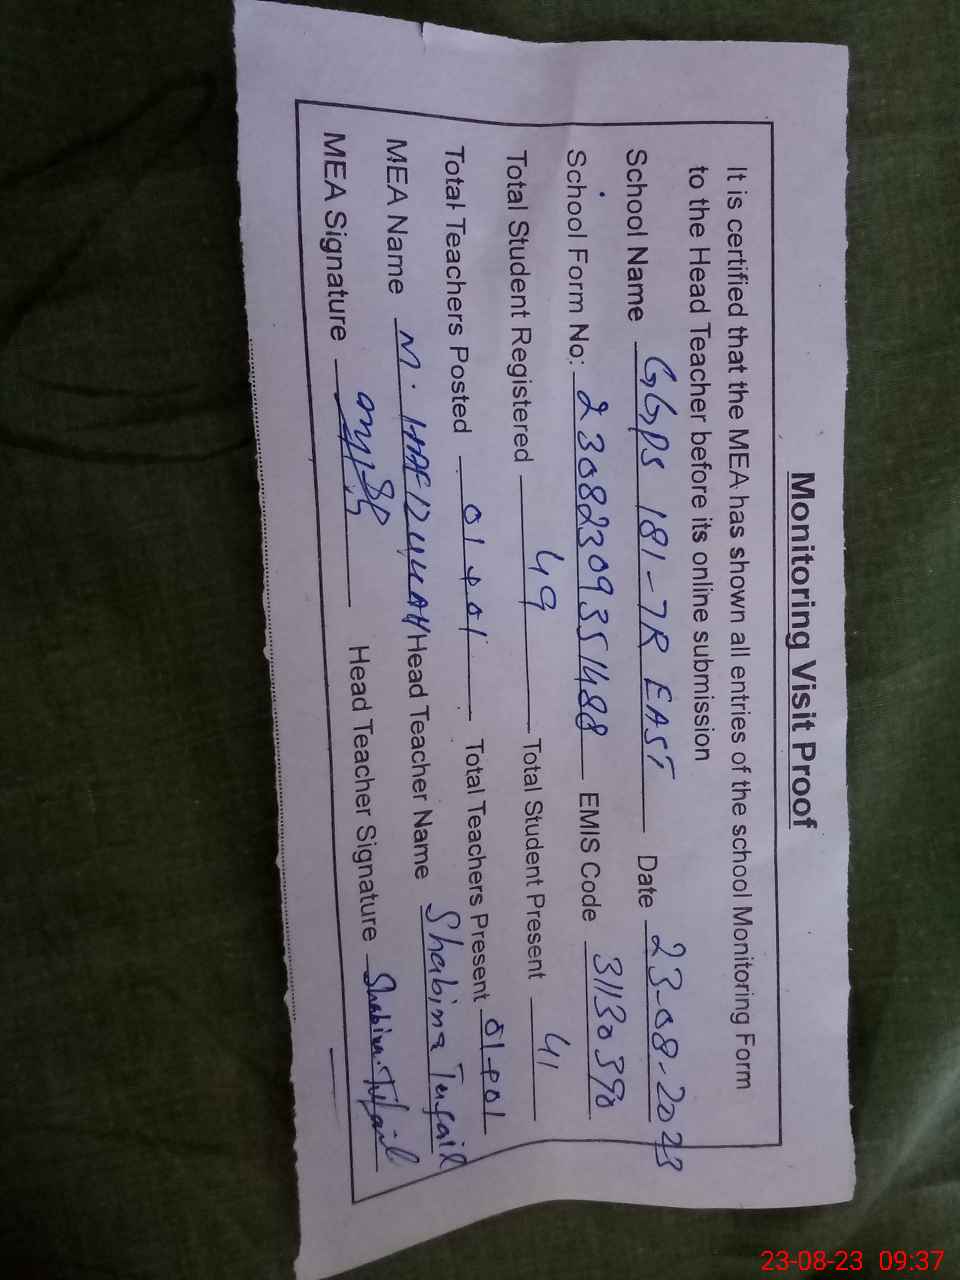 Monitoring Visit Proof
It is certified that the MEA has shown all entries of the school Monitoring Form
to the Head Teacher before its online submission
School Name GGPS 181-7R EAST Date 23-08-2023
School Form No: 230823093351488 EMIS Code 31130390
Total Student Registered 49 Total Student Present 41
Total Teachers Posted 01+01 Total Teachers Present 01+01
MEA Name M. HAFIZULLAH Head Teacher Name Shabina Tufail
MEA Signature Head Teacher Signature Shabina Tufail
23-08-23 09:37